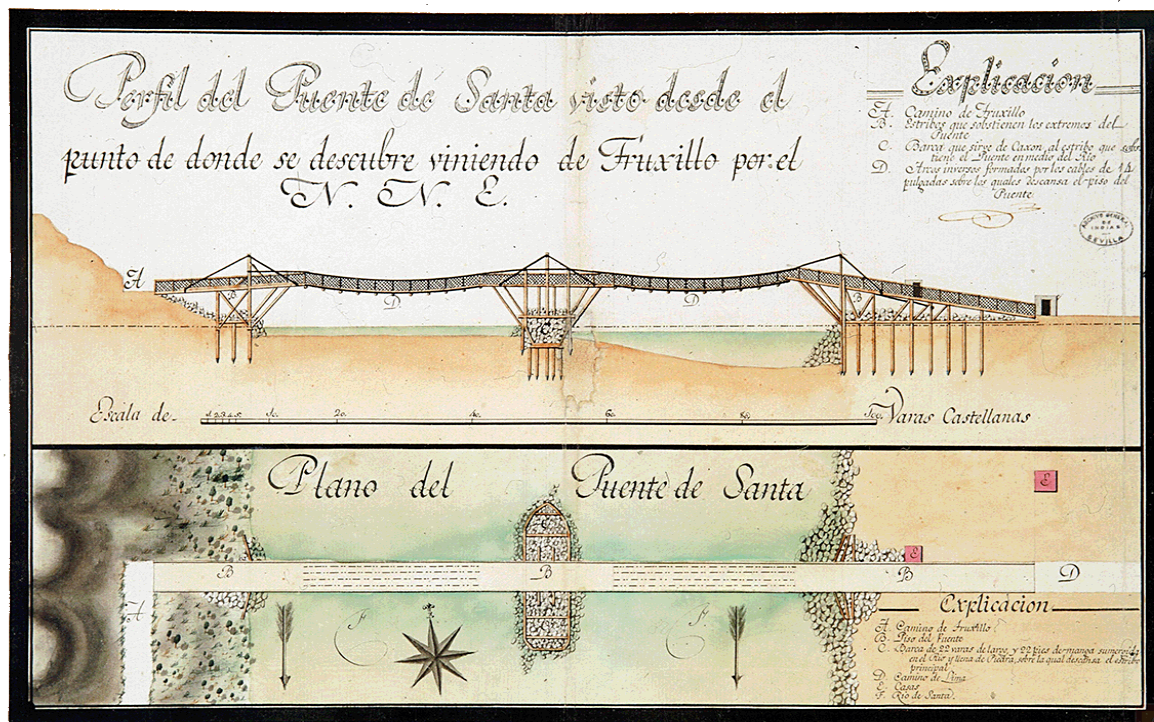 Perfil del Puente de Santa visto desde el
punto de donde se descubre viniendo de Truxillo por el
N. N. E.
Explicacion
A. Camino de Truxillo
B. Estribos que sobstienen los extremos del
Puente
C. Barca que sirve de Caxon, al estribo que sobs-
tiene el Puente en medio del Rio
D. Arcos inversos formados por los cables de 14
pulgadas sobre los quales descansa el piso del
Puente
ARCHIVO GENERAL
DE
INDIAS
SEVILLA
A
B
D
C
D
B
Escala de
1 2 3 4 5 10. 20. 40. 60. 80. 100. Varas Castellanas
Plano del Puente de Santa
E
C
E
B
B
B
D
A
F
F
Explicacion
A. Camino de Truxillo
B. Piso del Puente
C. Barca de 22 varas de largo, y 22 pies de manga sumergida
en el Rio y llena de Piedra, sobre la qual descansa el estribo
principal
D. Camino de Lima
E. Casas
F. Rio de Santa.